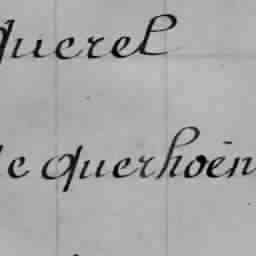 querel
de querhoën